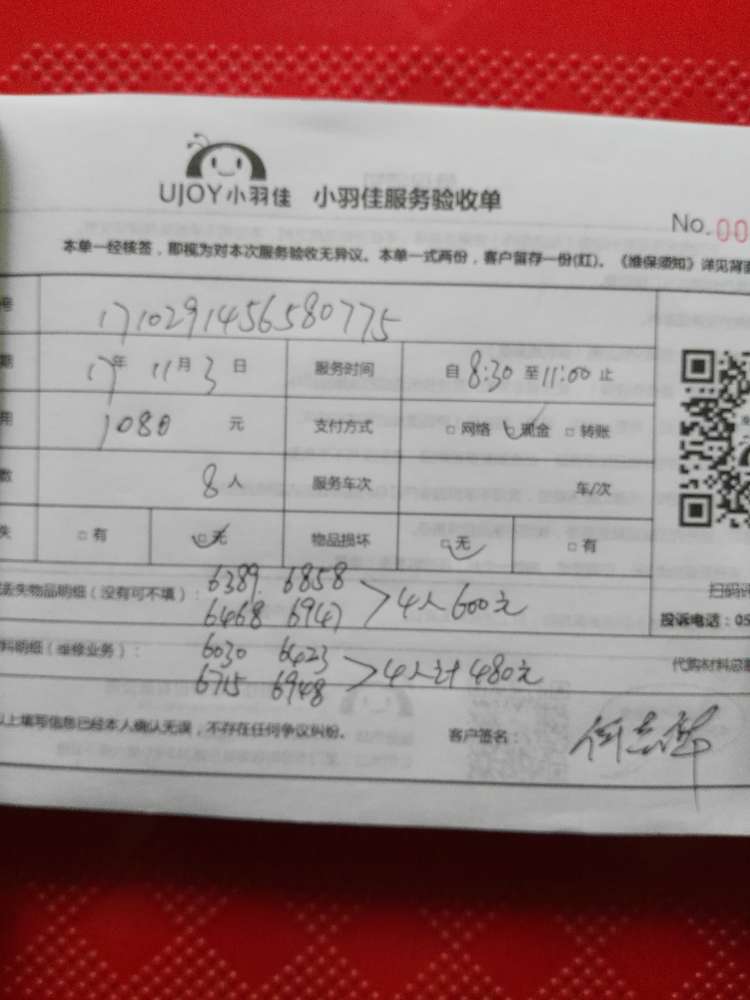 UJOY小羽佳 小羽佳服务验收单
No.00
本单一经核签，即视为对本次服务验收无异议。本单一式两份，客户留存一份(红)。《维保须知》详见背面
号 1710291456580775
期 17年 11月 3日 服务时间 自 8:30 至 11:00 止
用 1080 元 支付方式 □ 网络 □ 现金 □ 转账
数 8人 服务车次 车/次
失 □ 有 □ 无 物品损坏 □ 无 □ 有
丢失物品明细（没有可不填）： 6389. 6858
6468 6947 > 4人600元
料明细（维修业务）： 6030 6423
6715 6948 > 4人计480元
以上填写信息已经本人确认无误，不存在任何争议纠纷。 客户签名：
扫码评
投诉电话：05
代购材料总额